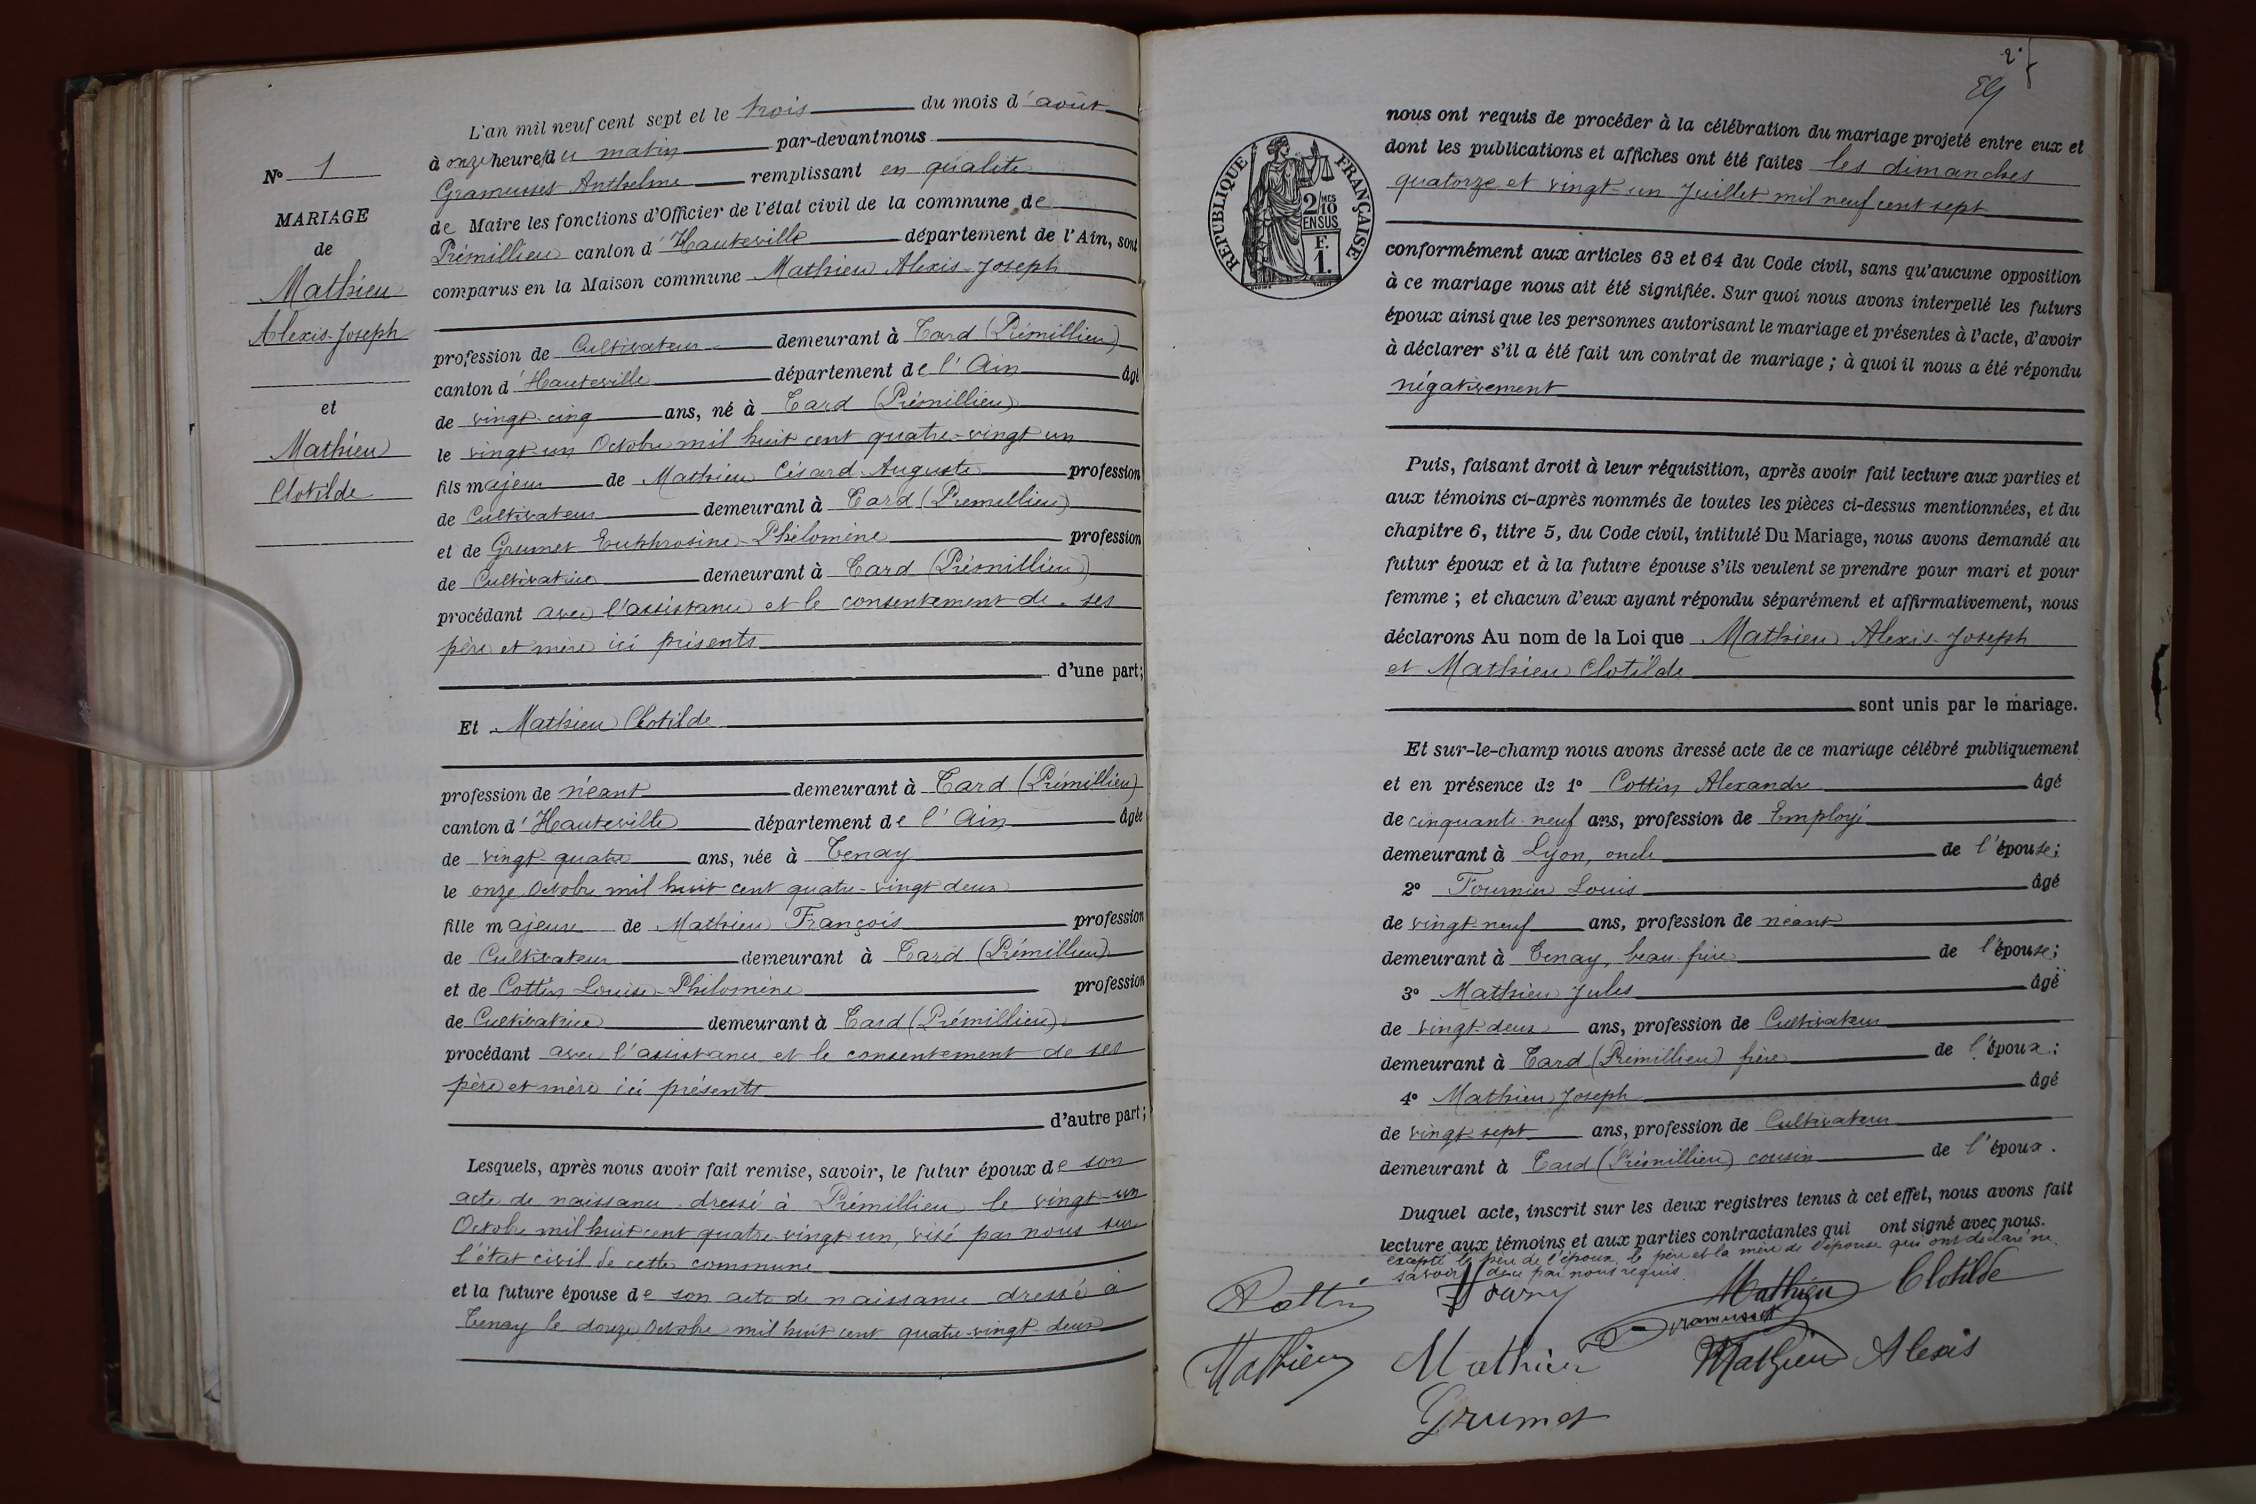 L'an mil neuf cent sept et le trois du mois d'août
à onze heure du matin par-devant nous
N° 1
Gramusset Anthelme remplissant en qualité
de Maire les fonctions d'Officier de l'état civil de la commune de
Prémillieu canton d'Hauteville département de l'Ain, sont
comparus en la Maison commune Mathieu Alexis-Joseph
MARIAGE
de
Mathieu
Alexis-Joseph
et
Mathieu
Clotilde
profession de Cultivateur demeurant à Tard (Prémillieu)
canton d'Hauteville département de l'Ain âgé
de vingt-cinq ans, né à Tard (Prémillieu)
le vingt-un Octobre mil huit cent quatre-vingt un
fils majeur de Mathieu Césard Auguste profession
de Cultivateur demeurant à Tard (Prémillieu)
et de Grumet Euphrosine-Philomène profession
de Cultivatrice demeurant à Tard (Prémillieu)
procédant avec l'assistance et le consentement de ses
père et mère ici présents
d'une part;
Et Mathieu Clotilde
profession de néant demeurant à Tard (Prémillieu)
canton d'Hauteville département de l'Ain âgée
de vingt-quatre ans, née à Tenay
le onze Octobre mil huit cent quatre-vingt deux
fille majeure de Mathieu François profession
de Cultivateur demeurant à Tard (Prémillieu)
et de Cottin Louise-Philomène profession
de Cultivatrice demeurant à Tard (Prémillieu)
procédant avec l'assistance et le consentement de ses
père et mère ici présents
d'autre part;
Lesquels, après nous avoir fait remise, savoir, le futur époux de son
acte de naissance dressé à Prémillieu le vingt-un
Octobre mil huit cent quatre-vingt un, visé par nous sur
l'état civil de cette commune
et la future épouse de son acte de naissance dressé à
Tenay le douze Octobre mil huit cent quatre-vingt-deux
RÉPUBLIQUE FRANÇAISE
2/10 MES
EN SUS
F.
1.
nous ont requis de procéder à la célébration du mariage projeté entre eux et
dont les publications et affiches ont été faites les dimanches
quatorze et vingt-un Juillet mil neuf cent sept
conformément aux articles 63 et 64 du Code civil, sans qu'aucune opposition
à ce mariage nous ait été signifiée. Sur quoi nous avons interpellé les futurs
époux ainsi que les personnes autorisant le mariage et présentes à l'acte, d'avoir
à déclarer s'il a été fait un contrat de mariage ; à quoi il nous a été répondu
négativement
Puis, faisant droit à leur réquisition, après avoir fait lecture aux parties et
aux témoins ci-après nommés de toutes les pièces ci-dessus mentionnées, et du
chapitre 6, titre 5, du Code civil, intitulé Du Mariage, nous avons demandé au
futur époux et à la future épouse s'ils veulent se prendre pour mari et pour
femme ; et chacun d'eux ayant répondu séparément et affirmativement, nous
déclarons Au nom de la Loi que Mathieu Alexis-Joseph
et Mathieu Clotilde
sont unis par le mariage.
Et sur-le-champ nous avons dressé acte de ce mariage célébré publiquement
et en présence de 1° Cottin Alexandre âgé
de cinquante-neuf ans, profession de Employé
demeurant à Lyon, oncle de l'épouse;
2° Fournier Louis âgé
de vingt-neuf ans, profession de néant
demeurant à Tenay, beau-frère de l'épouse;
3° Mathieu Jules âgé
de vingt-deux ans, profession de Cultivateur
demeurant à Tard (Prémillieu) frère de l'époux;
4° Mathieu Joseph âgé
de vingt-sept ans, profession de Cultivateur
demeurant à Tard (Prémillieu) cousin de l'époux.
Duquel acte, inscrit sur les deux registres tenus à cet effet, nous avons fait
lecture aux témoins et aux parties contractantes qui ont signé avec nous.
excepté le père de l'époux, le père et la mère de l'épouse qui ont déclaré ne
savoir de ce par nous requis.
Cottin
Mathieu Clotilde
Gramusset
Mathieu Mathieu Mathieu Alexis
Grumet